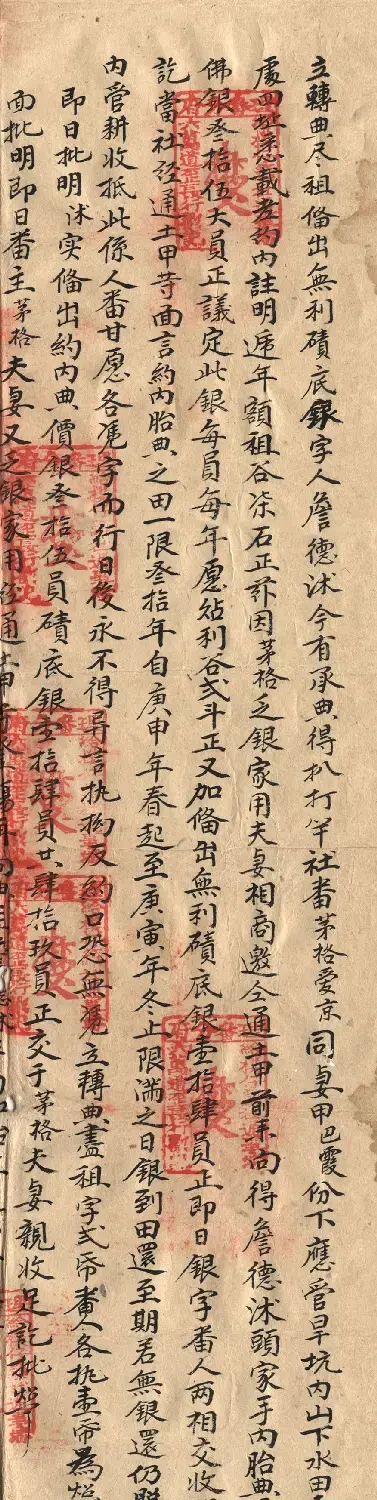 立轉典尽租俻出無利磧底銀字人詹德沭今有承典得朳打罕社番茅格爱京同妻甲巴霞份下應管旱坑内山下水田
處四址悉載老約内註明逓年額租谷柒石正玆因茅格乏銀家用夫妻相商邀仝通土甲前來向得詹德沭頭家手内胎典
佛銀叁拾伍大員正議定此銀每員每年愿坫利谷弍斗正又加俻出無利磧底銀壹拾肆員正即日銀字番人两相交收
訖當社经通土甲等面言約内胎典之田一限叁拾年自庚申年春起至庚寅年冬止限満之日銀到田還至期若無銀還仍
内管耕收抵此係人番甘愿各凭字而行日後永不得异言执拗反約口恐無凭立轉典盡租字弍帋番人各执壹帋為炤
即日批明沭实俻出約内典價銀叁拾伍員磧底銀壹拾肆員共肆拾玖員正交于茅格夫妻親收足訖批炤
面批明即日番主茅格夫妻又乏銀家用